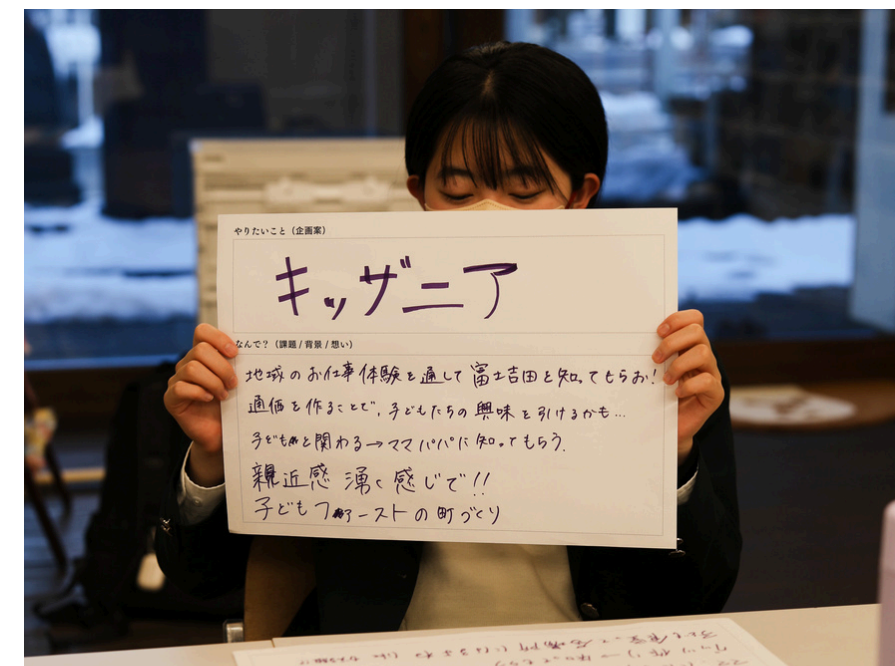 やりたいこと（企画案）
キッザニア
なんで？（課題 / 背景 / 想い）
地域のお仕事体験を通して富士吉田を知ってもらお！
通価を作ることで、子どもたちの興味を引けるかも…
子どもと関わる→ママパパに知ってもらう．
親近感湧く感じで!!
子どもファーストの町づくり